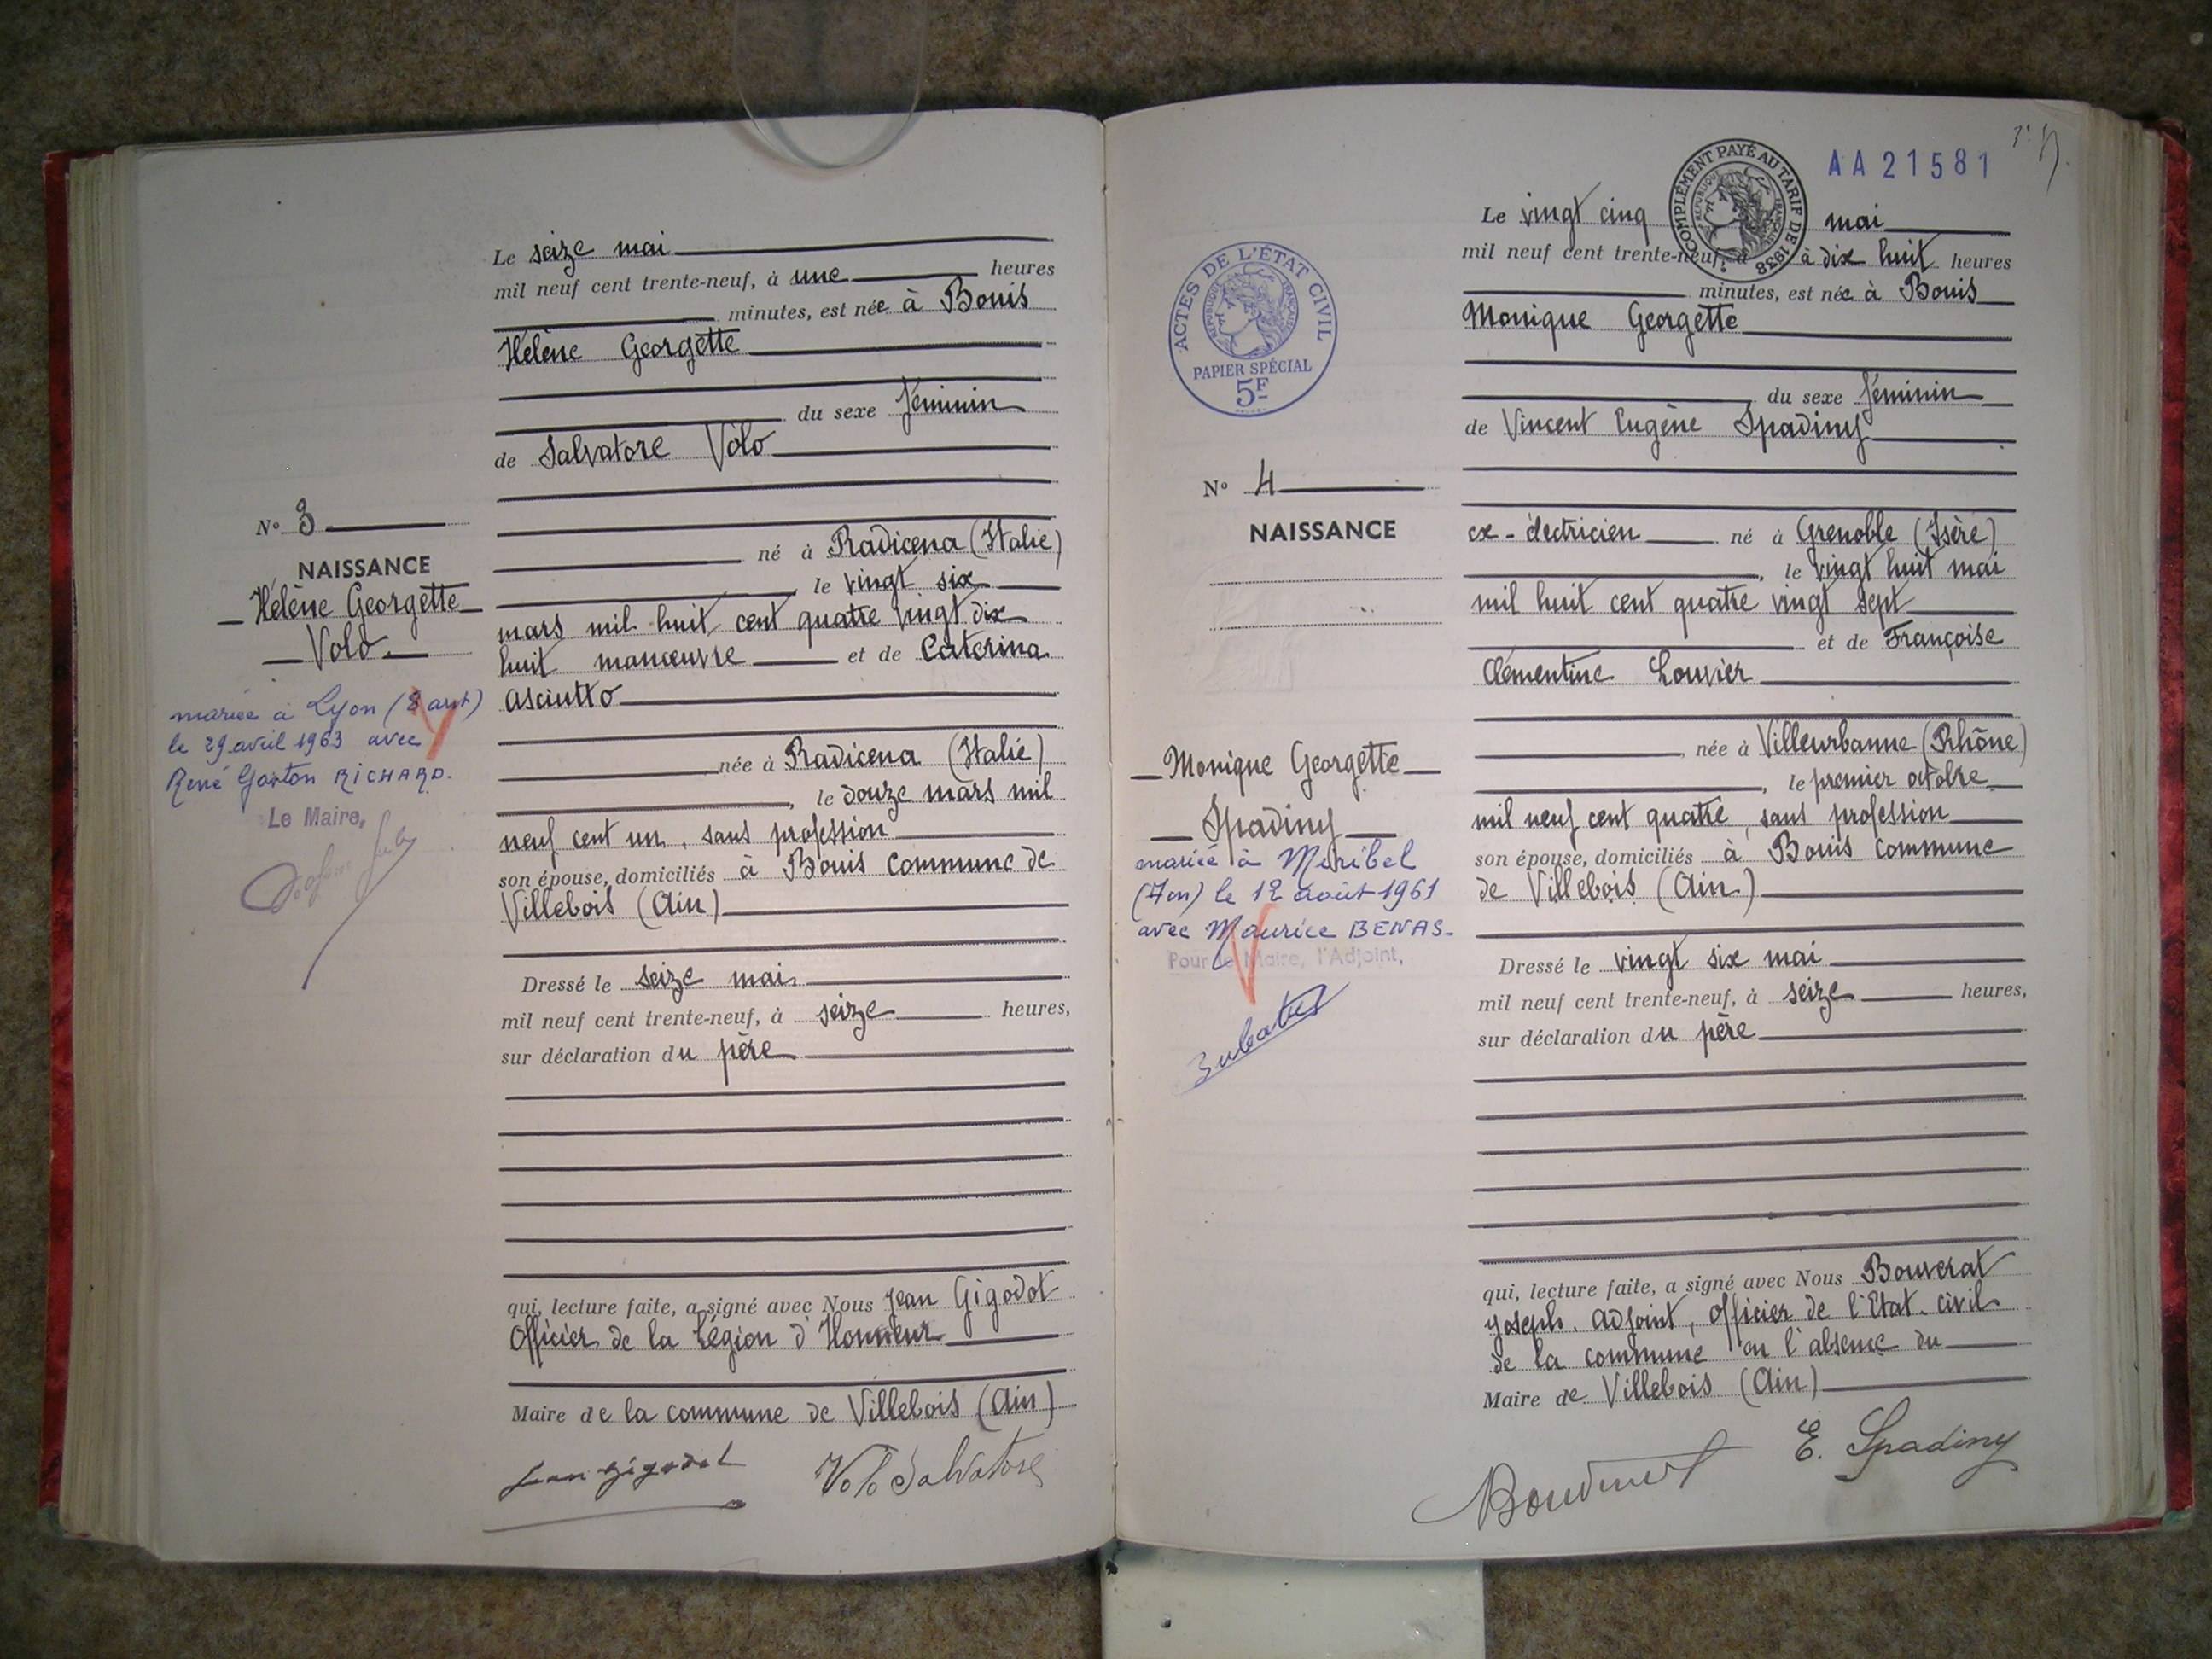 Le seize mai
mil neuf cent trente-neuf, à une heures
minutes, est née à Bouis
Hélène Georgette
du sexe féminin
de Salvatore Volo
né à Radicena (Italie)
le vingt six
mars mil huit cent quatre vingt dix
huit manœuvre et de Caterina
Asciutto
née à Radicena (Italie)
, le douze mars mil
neuf cent un, sans profession
son épouse, domiciliés à Bouis commune de
Villebois (Ain)
Dressé le seize mai
mil neuf cent trente-neuf, à seize heures,
sur déclaration du père
qui, lecture faite, a signé avec Nous Jean Gigodot
Officier de la Légion d'Honneur
Maire de la commune de Villebois (Ain)
Jean Gigodot Volo Salvatore
N° 3
NAISSANCE
Hélène Georgette
Volo
mariée à Lyon (8 arrt)
le 29 avril 1963 avec
René Gaston RICHARD.
Le Maire,
AA 21581
COMPLÉMENT PAYÉ AU TARIF DE 1938
RÉPUBLIQUE FRANÇAISE
Le vingt cinq mai
mil neuf cent trente-neuf, à dix huit heures
minutes, est née à Bouis
Monique Georgette
du sexe féminin
de Vincent Eugène Spadiny
ex-électricien né à Grenoble (Isère)
, le vingt huit mai
mil huit cent quatre vingt sept
et de Françoise
Clémentine Louvier
, née à Villeurbanne (Rhône)
, le premier octobre
mil neuf cent quatre, sans profession
son épouse, domiciliés à Bouis commune
de Villebois (Ain)
Dressé le vingt six mai
mil neuf cent trente-neuf, à seize heures,
sur déclaration du père
qui, lecture faite, a signé avec Nous Bouverat
Joseph. Adjoint, Officier de l'Etat-civil
de la commune en l'absence du
Maire de Villebois (Ain)
E. Spadiny
ACTES DE L'ÉTAT CIVIL
RÉPUBLIQUE FRANÇAISE
PAPIER SPÉCIAL
5F
N° 4
NAISSANCE
Monique Georgette
Spadiny
mariée à Miribel
le 12 août 1961
avec Maurice BENAS.
Pour le Maire, l'Adjoint,